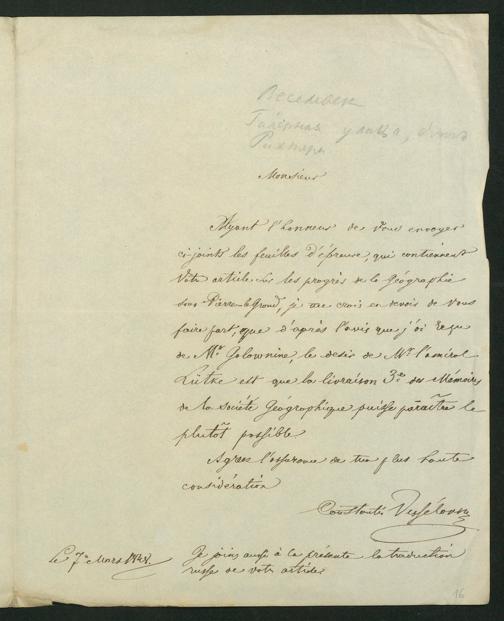 Галерная улица, домъ
Рихтера
Monsieur
Ayant l'honneur de Vous envoyer
ci-joints les feuilles d'épreuve, qui contiennent
Votre article sur les progrès de la Géographie
sous Pierre-le-Grand, je me crois en devoir de Vous
faire part, que d'après l'avis que j'ai reçu
de Mr Golownine, le desir de Mr l'amiral
Lütke est que la livraison 3e des Mémoires
de la Societé Géographique puisse paraître le
plutôt possible.
Agréez l'assurance de ma plus haute
considération
Constantin Vessélovsky
le 7 Mars 1848.
Je joins aussi à la présente la traduction
russe de votre article.
16